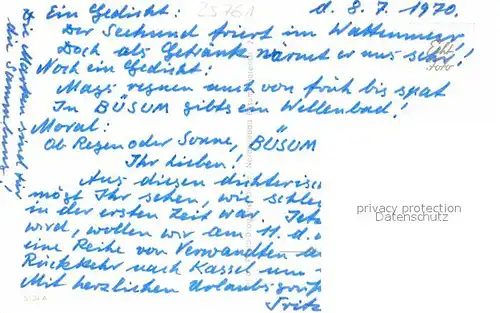 Ein Gedicht:
2576A
d. 8. 7. 1970.
Der Seehund friert im Wattenmeer
Doch als Getränk wärmt er uns sehr!
Echt
Foto
Noch ein Gedicht:
Mags regnen auch von früh bis spät
In BÜSUM gibts ein Wellenbad!
Moral:
Ob Regen oder Sonne, BÜSUM
Ihr Lieben!
Aus diesen dichterisc
mögt Ihr sehen, wie schle
in der ersten Zeit war. Jetz
wird, wollen wir am 11. d.
eine Reihe von Verwandten
Rückkehr nach Kassel um
Mit herzlichen Urlaubsgrüß
Fritz
Die Marken sind für
die Sammlung!
privacy protection
Datenschutz